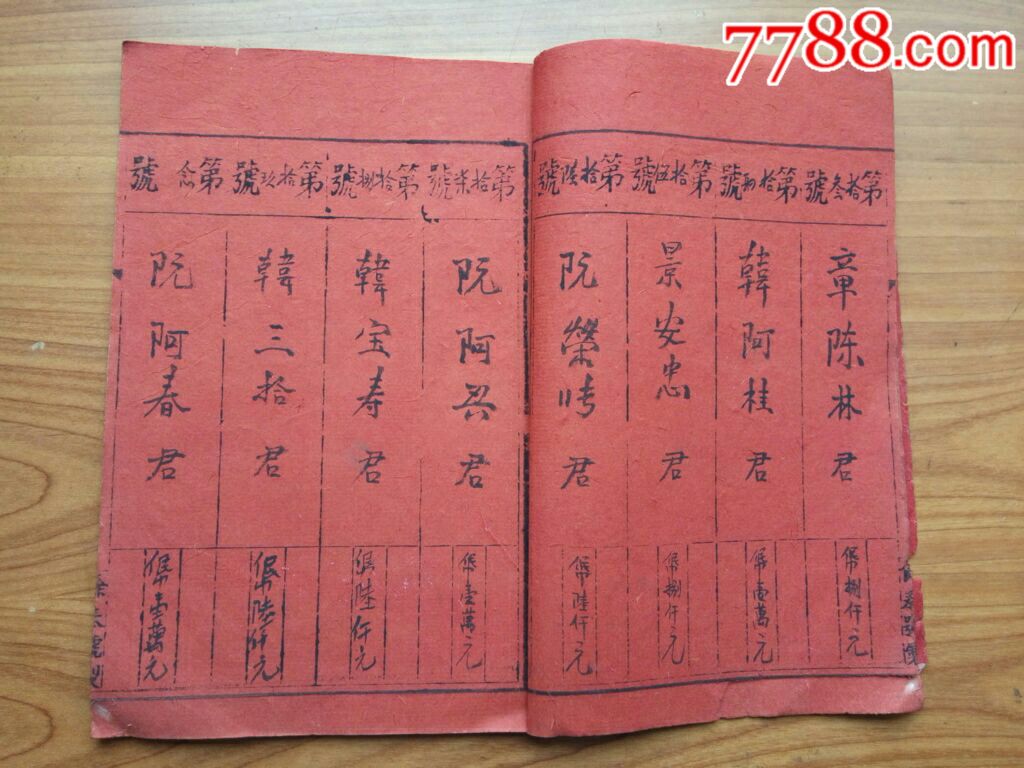 7788.com
第拾叁號
章陈林君
保幣捌仟元
第拾肆號
韓阿桂君
保幣壹萬元
第拾伍號
景安忠君
保幣捌仟元
第拾陸號
阮榮君
保幣陸仟元
第拾柒號
阮阿兴君
保幣壹萬元
第拾捌號
韓宝寿君
保幣陸仟元
第拾玖號
韓三拾君
保幣陸仟元
第念號
阮阿春君
保幣壹萬元